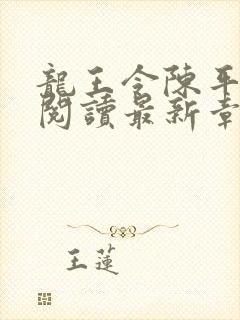 龍王令陳平
閱讀最新章
王蓮